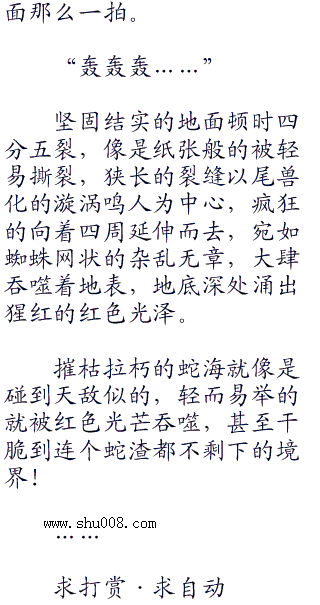 面那么一拍。
“轰轰轰……”
坚固结实的地面顿时四
分五裂，像是纸张般的被轻
易撕裂，狭长的裂缝以尾兽
化的漩涡鸣人为中心，疯狂
的向着四周延伸而去，宛如
蜘蛛网状的杂乱无章，大肆
吞噬着地表，地底深处涌出
猩红的红色光泽。
摧枯拉朽的蛇海就像是
碰到天敌似的，轻而易举的
就被红色光芒吞噬，甚至干
脆到连个蛇渣都不剩下的境
界！
www.shu008.com
……
求打赏·求自动